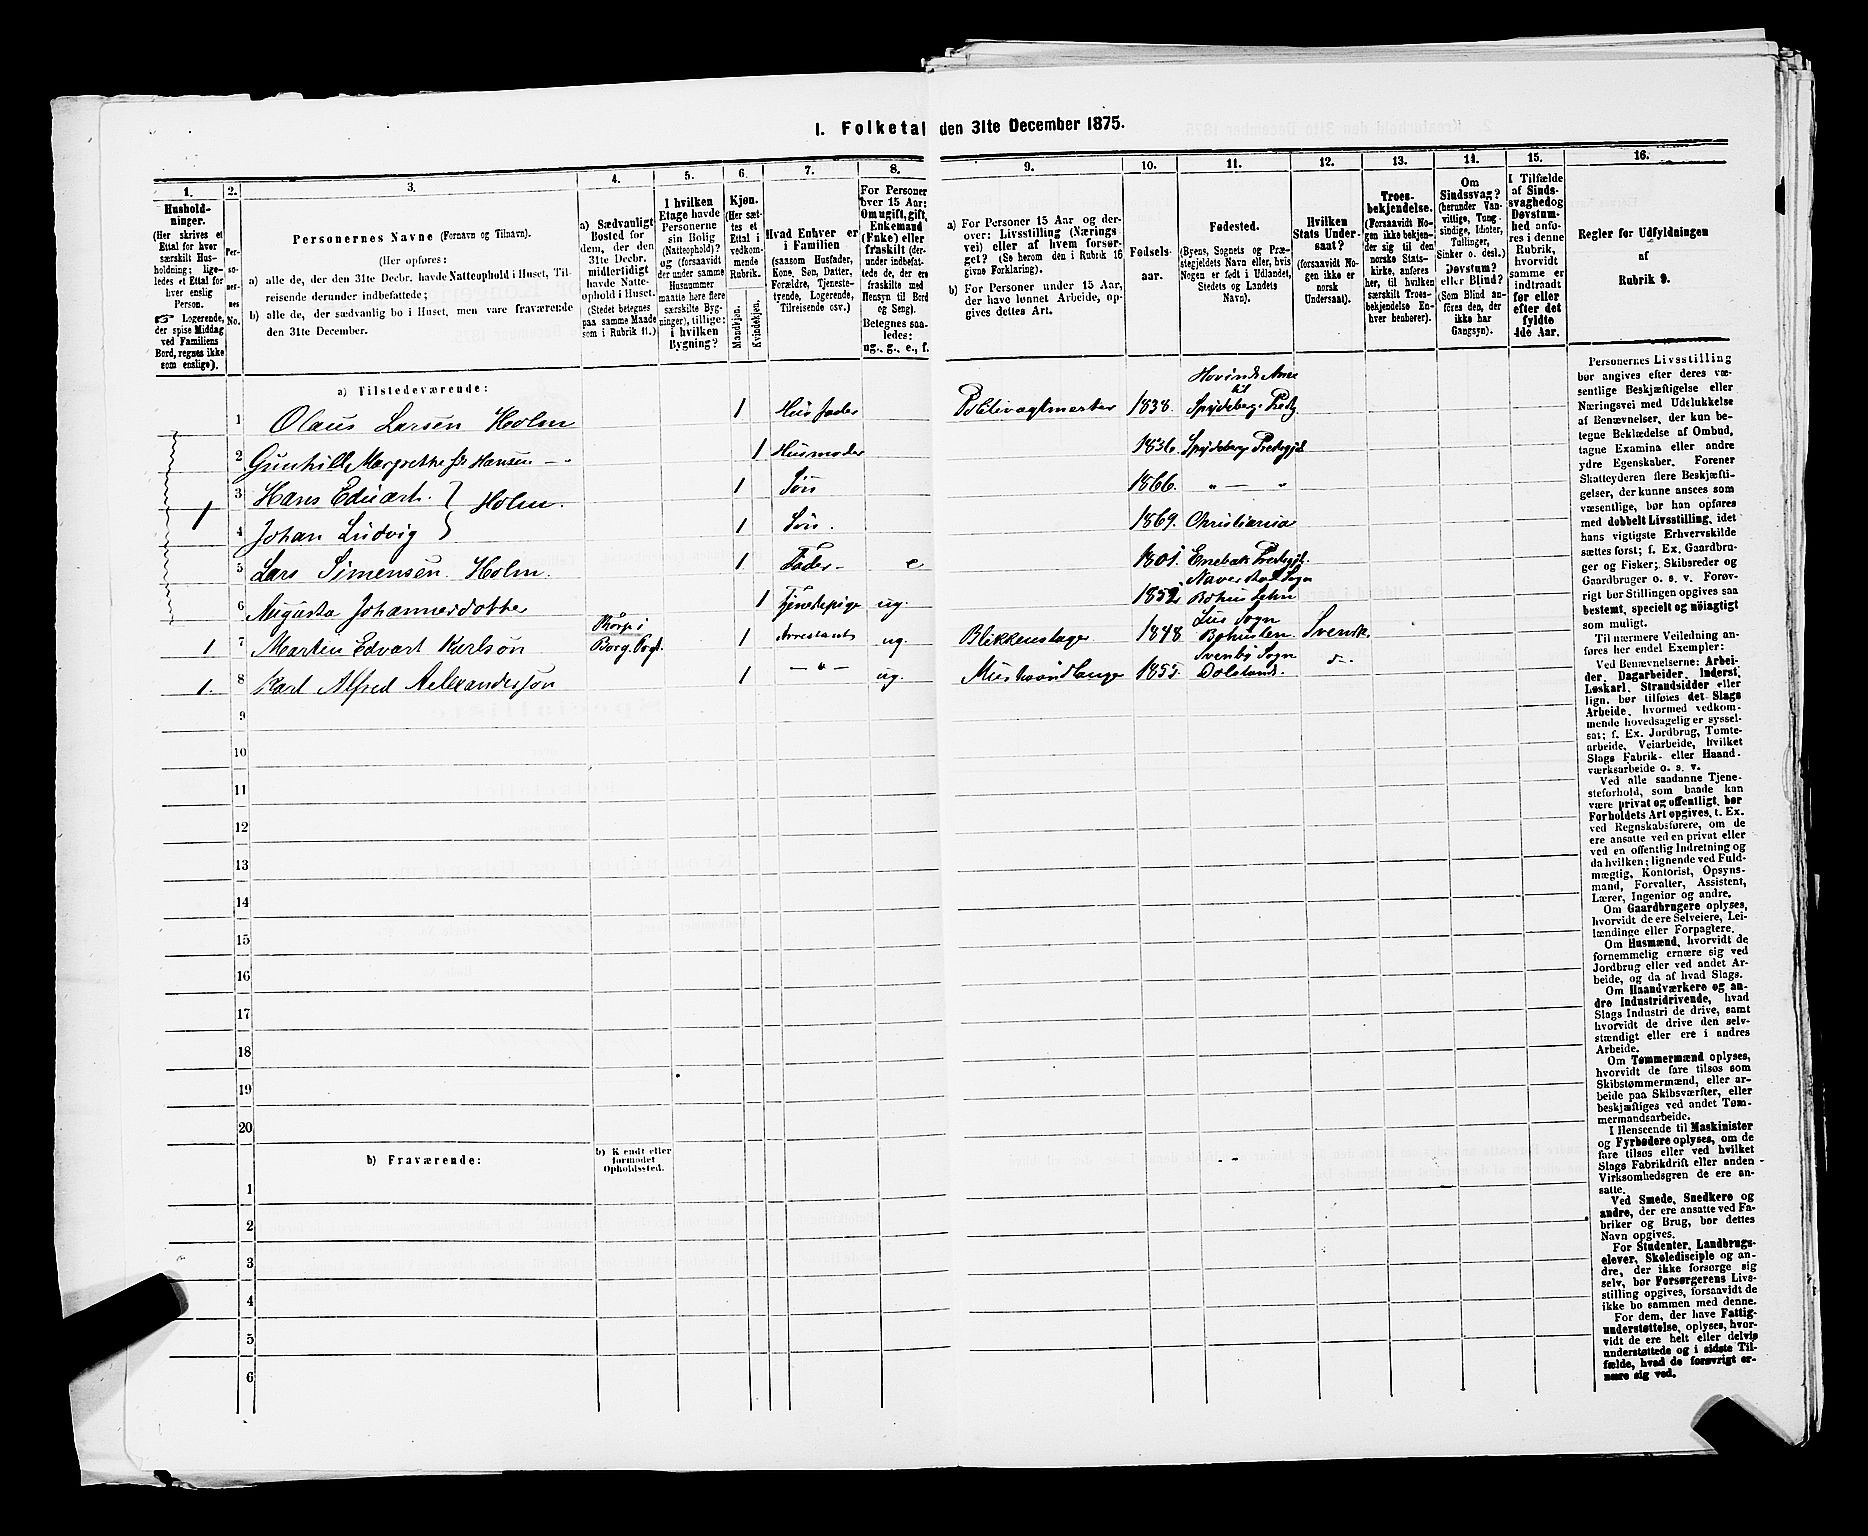 1. Folketal den 31te December 1875.
1.
2.
3.
4.
5.
6.
7.
8.
9.
10.
11.
12.
13.
14.
15.
16.
Hushold-
ninger.
(Her skrives et
Ettal for hver
særskilt Hus-
holdning; lige-
ledes et Ettal for
hver enslig
Person.
☞ Logerende,
der spise Middag
ved Familiens
Bord, regnes ikke
som enslige).
Per-
so-
ner-
nes
No.
Personernes Navne (Fornavn og Tilnavn).
(Her opføres:
a) alle de, der den 31te Decbr. havde Natteophold i Huset, Til-
reisende derunder indbefattede;
b) alle de, der sædvanlig bo i Huset, men vare fraværende
den 31te December.
a) Sædvanligt
Bosted for
dem, der den
31te Decbr.
midlertidigt
havde Natte-
ophold i Huset.
(Stedet betegnes
paa samme Maade
som i Rubrik 11.)
I hvilken
Etage havde
Personerne
sin Bolig
(Natteophold)?
og (forsaavidt
der under samme
Husnummer
maatte høre flere
særskilte Byg-
ninger), tillige:
i hvilken
Bygning?
Kjøn.
(Her sæt-
tes et
Ettal i
vedkom-
mende
Rubrik.
Mandkjøn.
Kvindekjøn.
Hvad Enhver er
i Familien
(saasom Husfader,
Kone, Søn, Datter,
Forældre, Tjeneste-
tyende, Logerende,
Tilreisende osv.)
For Personer
over 15 Aar:
Om ugift, gift,
Enkemand
(Enke) eller
fraskilt (der-
under indbefat-
tede de, der ere
fraskilte med
Hensyn til Bord
og Seng).
Betegnes saa-
ledes:
ug., g., e., f.
a) For Personer 15 Aar og der-
over: Livsstilling (Nærings
vei) eller af hvem forsør-
get? (Se herom den i Rubrik 16
givne Forklaring).
b) For Personer under 15 Aar,
der have lønnet Arbeide, op-
gives dettes Art.
Fødsels-
aar.
Fødested.
(Byens, Sognets og Præ-
stegjeldets Navn eller, hvis
Nogen er født i Udlandet,
Stedets og Landets
Navn).
Hvilken
Stats Under-
saat?
(forsaavidt No-
gen ikke er
norsk
Undersaat).
Troes-
bekjendelse.
(Forsaavidt No-
gen ikke bekjen-
der sig til den
norske Stats-
kirke, anføres
her, til hvilken
særskilt Troes-
bekjendelse En-
hver henhører).
Om
Sindssvag?
(herunder Van-
vittige, Tung-
sindige, Idioter,
Tullinger,
Sinker o. desl.)
Døvstum?
eller Blind?
(Som Blind an-
føres den, der
ikke har
Gangsyn).
I Tilfælde
af Sinds-
svaghed og
Døvstum-
hed anfø-
res i denne
Rubrik,
hvorvidt
samme er
indtraadt
før eller
efter det
fyldte
4de Aar.
Regler for Udfyldningen
af
Rubrik 9.
a) Tilstedeværende:
1 Olaus Larsen Holm 1 Husfader Politivagtmester 1838. Spydeberg Prstg
2 Gunhild Margrethe Hansen 1 Husmoder 1836. Spydeberg Prstgjd
3 Hans Eduart } Holm. 1 Søn 1866. " — "
1 4 Johan Ludvig } 1 Søn. 1869. Christiania
5 Lars Simensen Holm. 1 Fader e 1801. Enebak Prstgjd.
6 Augusta Johannesdotter 1 Tjenestepige ug. 1852 Naverstad Sogn Bohus Lehn
1 7 Martin Edvart Karlson Borg. 1 Arrestant ug. Blikkenslager 1848. Sogn Bohuslen Svensk.
1. 8 Karl Alfred Aelexanderson 1 — " — ug. 1855. Sogn Dalsland. do.
9
10
11
12
13
14
15
16
17
18
19
20
b) Fraværende:
b) Kjendt eller
formodet
Opholdssted.
1
2
3
4
5
6
Personernes Livsstilling
bør angives efter deres væ-
sentlige Beskjæftigelse eller
Næringsvei med Udelukkelse
af Benævnelser, der kun be-
tegne Beklædelse af Ombud,
tagne Examina eller andre
ydre Egenskaber. Forener
Skatteyderen flere Beskjæfti-
gelser, der kunne ansees som
væsentlige, bør han opføres
med dobbelt Livsstilling, idet
hans vigtigste Erhvervskilde
sættes først; f. Ex. Gaardbru-
ger og Fisker; Skibsreder og
Gaardbruger o. s. v. Forøv-
rigt bør Stillingen opgives saa
bestemt, specielt og nøiagtigt
som muligt.
Til nærmere Veiledning an-
føres her endel Exempler:
Ved Benævnelserne: Arbei-
der, Dagarbeider, Inderst,
Løskarl, Strandsidder eller
lign. bør tilføies det Slags
Arbeide, hvormed vedkom-
mende hovedsagelig er syssel-
sat; f. Ex. Jordbrug, Tomte-
arbeide, Veiarbeide, hvilket
Slags Fabrik- eller Haand-
værksarbeide o. s. v.
Ved alle saadanne Tjene-
steforhold, som baade kan
være privat og offentligt, bør
Forholdets Art opgives, t. Ex.
ved Regnskabsførere, om de
ere ansatte ved en privat eller
ved en offentlig Indretning og
da hvilken; lignende ved Fuld-
mægtig, Kontorist, Opsyns-
mand, Forvalter, Assistent,
Lærer, Ingeniør og andre.
Om Gaardbrugere oplyses,
hvorvidt de ere Selveiere, Lei-
lændinge eller Forpagtere.
Om Husmænd, hvorvidt de
fornemmelig ernære sig ved
Jordbrug eller ved andet Ar-
beide, og da af hvad Slags.
Om Haandværkere og an-
dre Industridrivende, hvad
Slags Industri de drive, samt
hvorvidt de drive den selv-
stændigt eller ere i andres
Arbeide.
Om Tømmermænd oplyses,
hvorvidt de fare tilsøs som
Skibstømmermænd, eller ar-
beide paa Skibsværfter, eller
beskjæftiges ved andet Tøm-
mermandsarbeide.
I Henseende til Maskinister
og Fyrbødere oplyses, om de
fare tilsøs eller ved hvilket
Slags Fabrikdrift eller anden
Virksomhedsgren de ere an-
satte.
Ved Smede, Snedkere og
andre, der ere ansatte ved Fa-
briker og Brug, bør dettes
Navn opgives.
For Studenter, Landbrugs-
elever, Skoledisciple og an-
dre, der ikke forsørge sig
selv, bør Forsørgerens Livs-
stilling opgives, forsaavidt de
ikke bo sammen med denne.
For dem, der have Fattig-
understøttelse, oplyses, hvor-
vidt de ere helt eller delvis
understøttede og i sidste Til-
fælde, hvad de forøvrigt er-
nære sig ved.